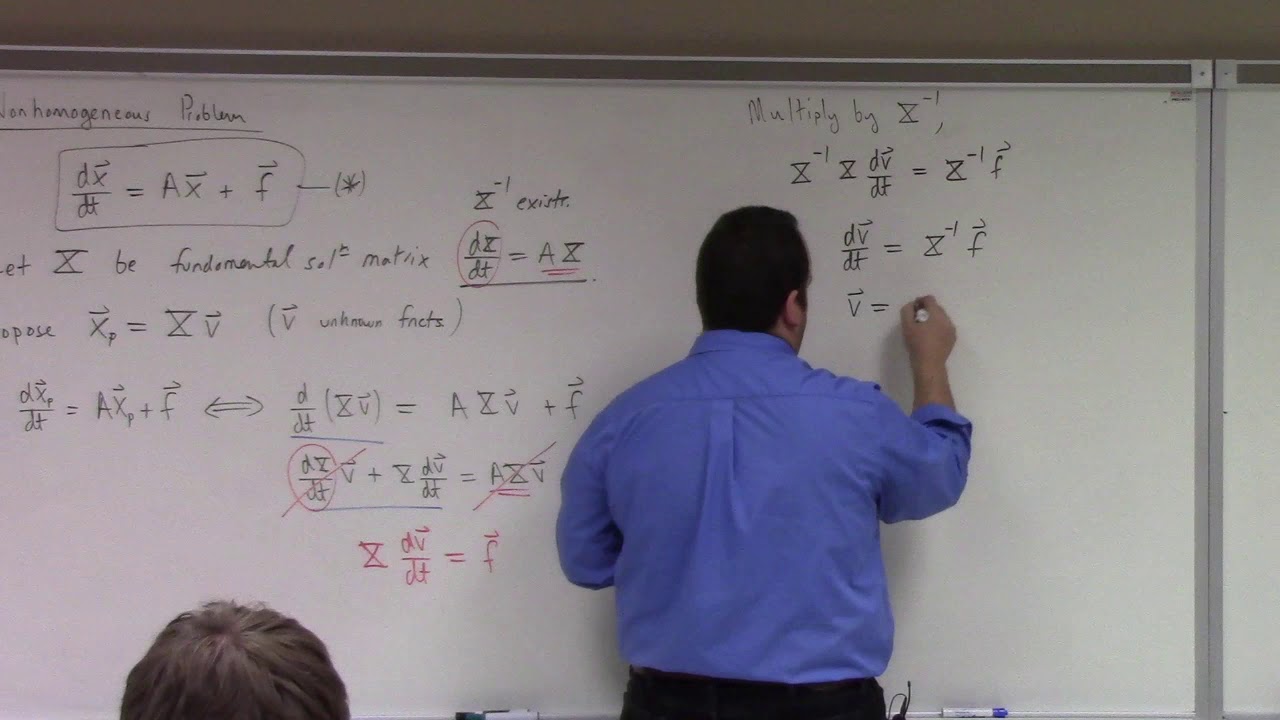 Nonhomogeneous Problem
dx⃗/dt = Ax⃗ + f⃗ —(*)
𝕏⁻¹ exists.
Let 𝕏 be fundamental solⁿ matrix d𝕏/dt = A𝕏
opose x⃗ₚ = 𝕏v⃗ (v⃗ unknown fncts.)
dx⃗ₚ/dt = Ax⃗ₚ + f⃗ ⟺ d/dt (𝕏v⃗) = A𝕏v⃗ + f⃗
d𝕏/dt v⃗ + 𝕏 dv⃗/dt = A𝕏v⃗
𝕏 dv⃗/dt = f⃗
Multiply by 𝕏⁻¹,
𝕏⁻¹ 𝕏 dv⃗/dt = 𝕏⁻¹ f⃗
dv⃗/dt = 𝕏⁻¹ f⃗
v⃗ =